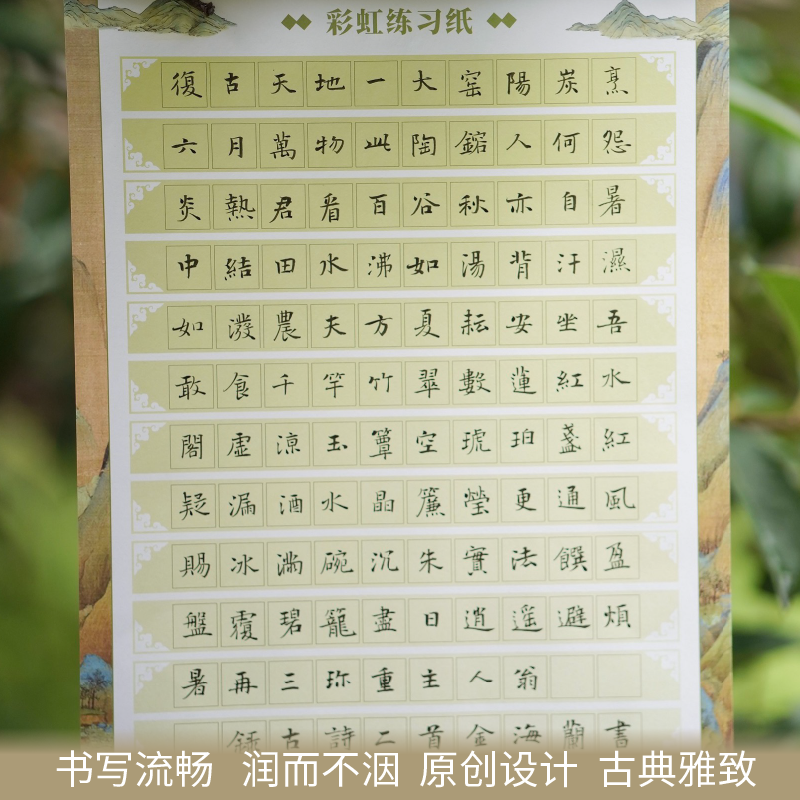 彩虹练习纸
復古天地一大窑陽炭烹
六月萬物此陶鎔人何怨
炎熱君看百谷秋亦自暑
中結田水沸如湯背汗濕
如潑農夫方夏耘安坐吾
敢食千竿竹翠數蓮紅水
閣虛涼玉簟空琥珀盞紅
疑漏酒水晶簾瑩更通風
賜冰滿碗沉朱實法饌盈
盤覆碧籠盡日逍遥避煩
暑再三珍重主人翁
古詩二首金海蘭書
书写流畅 润而不洇 原创设计 古典雅致